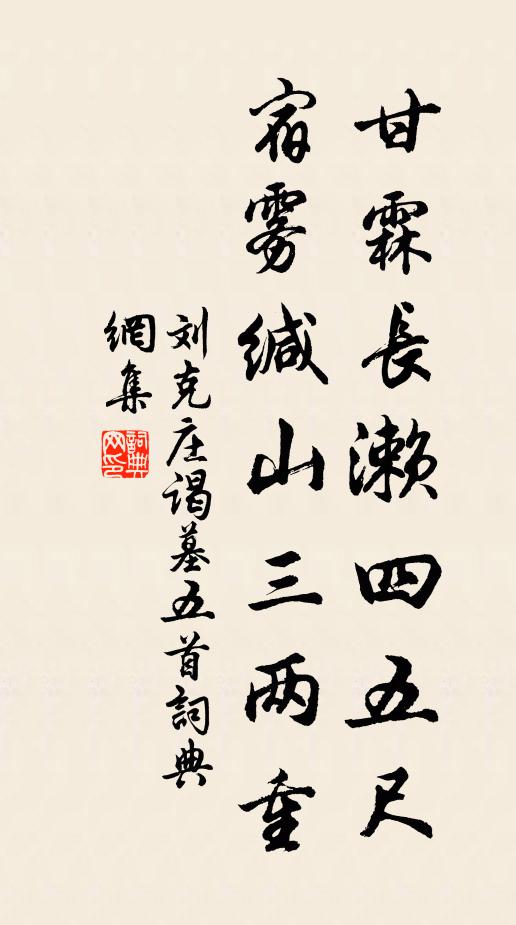 甘霖長濑四五尺
宿雾缄山三两重
刘克庄谒墓五首詞典
網集
詞典网印